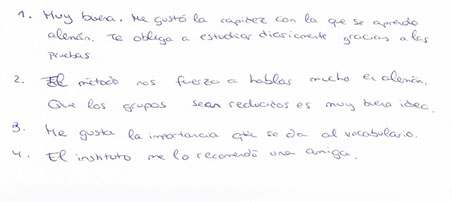 1. Muy buena. Me gustó la rapidez con la que se aprende
alemán. Te obliga a estudiar diariamente gracias a las
pruebas.
2. El método nos fuerza a hablar mucho en alemán.
Que los grupos sean reducidos es muy buena idea.
3. Me gusta la importancia que se da al vocabulario.
4. El instituto me lo recomendó una amiga.